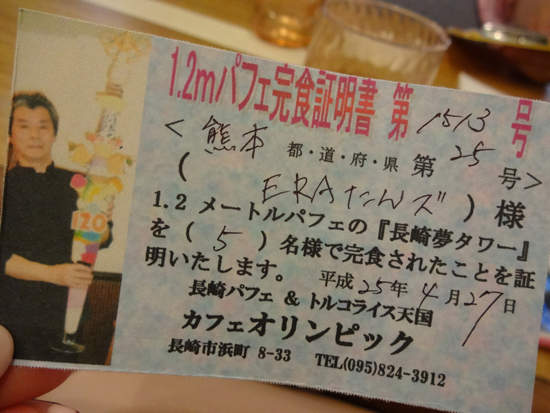 1.2mパフェ完食証明書 第1513号
<熊本 都・道・府・県 第25号>
(ERAたんズ)様
1.2 メートルパフェの『長崎夢タワー』
を(5)名様で完食されたことを証
明いたします。 平成25年4月27日
長崎パフェ & トルコライス天国
カフェオリンピック
長崎市浜町 8-33 TEL(095)824-3912
120